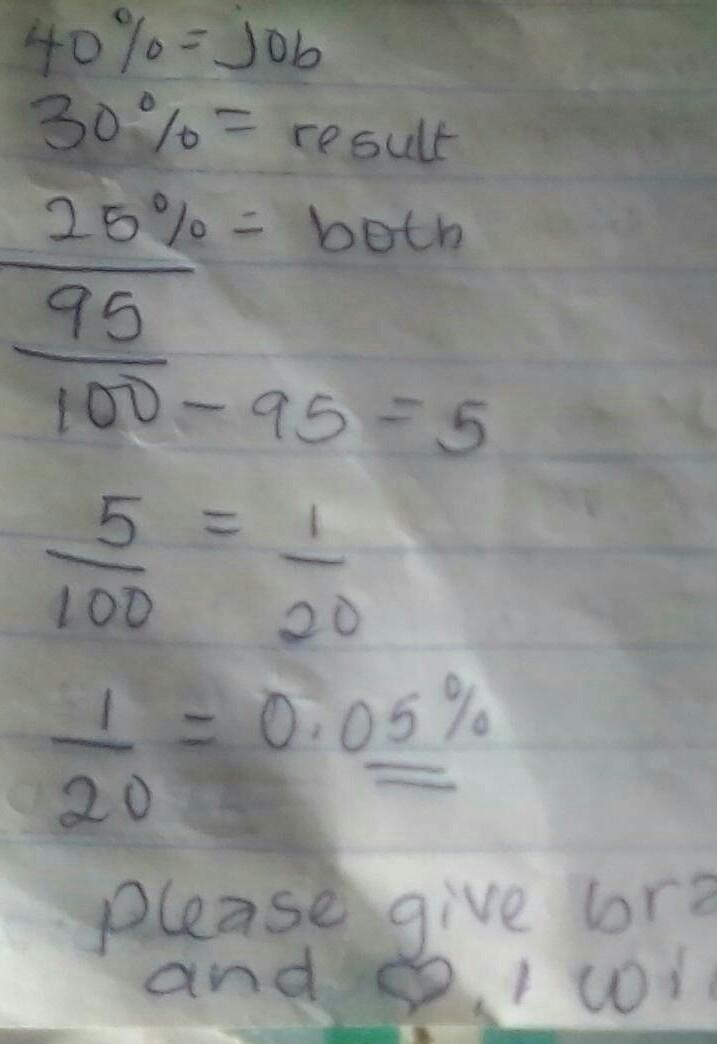 40% = job
30% = result
25% = both
95
100 - 95 = 5
5/100 = 1/20
1/20 = 0.05%
please give
and ♡, I